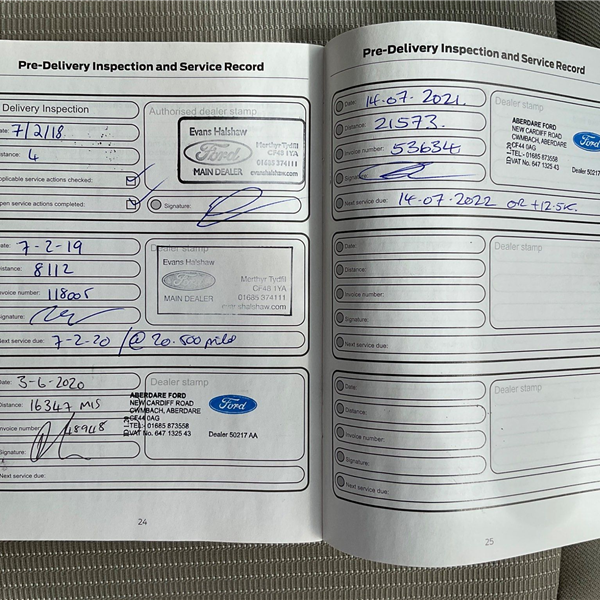 Pre-Delivery Inspection and Service Record
Delivery Inspection
Authorised dealer stamp
ate: 7/2/18
Evans Halshaw
Ford
Merthyr Tydfil
CF48 1YA
01685 374111
MAIN DEALER evanshalshaw.com
stance: 4
pplicable service actions checked:
pen service actions completed:
Signature:
ate: 7-2-19
Dealer stamp
Evans Halshaw
Ford
Merthyr Tydfil
CF48 1YA
01685 374111
MAIN DEALER evanshalshaw.com
istance: 8112
nvoice number: 118005
Signature:
Next service due: 7-2-20 / @ 20.500 mile
Date: 3-6-2020
Dealer stamp
Distance: 16347 MIS
ABERDARE FORD
NEW CARDIFF ROAD
CWMBACH, ABERDARE
CF44 0AG
TEL:- 01685 873558
VAT No. 647 1325 43
Ford
Dealer 50217 AA
48948
Signature:
Next service due:
24
Pre-Delivery Inspection and Service Record
Date: 14-07-2021
Dealer stamp
Distance: 21573.
ABERDARE FORD
NEW CARDIFF ROAD
CWMBACH, ABERDARE
CF44 0AG
TEL - 01685 873558
VAT No. 647 1325 43
Ford
Dealer 50217
Invoice number: 53634
Signature:
Next service due: 14-07-2022 OR +12.5K.
Date:
Dealer stamp
Distance:
Invoice number:
Signature:
Next service due:
Date:
Dealer stamp
Distance:
Invoice number:
Signature:
Next service due:
25